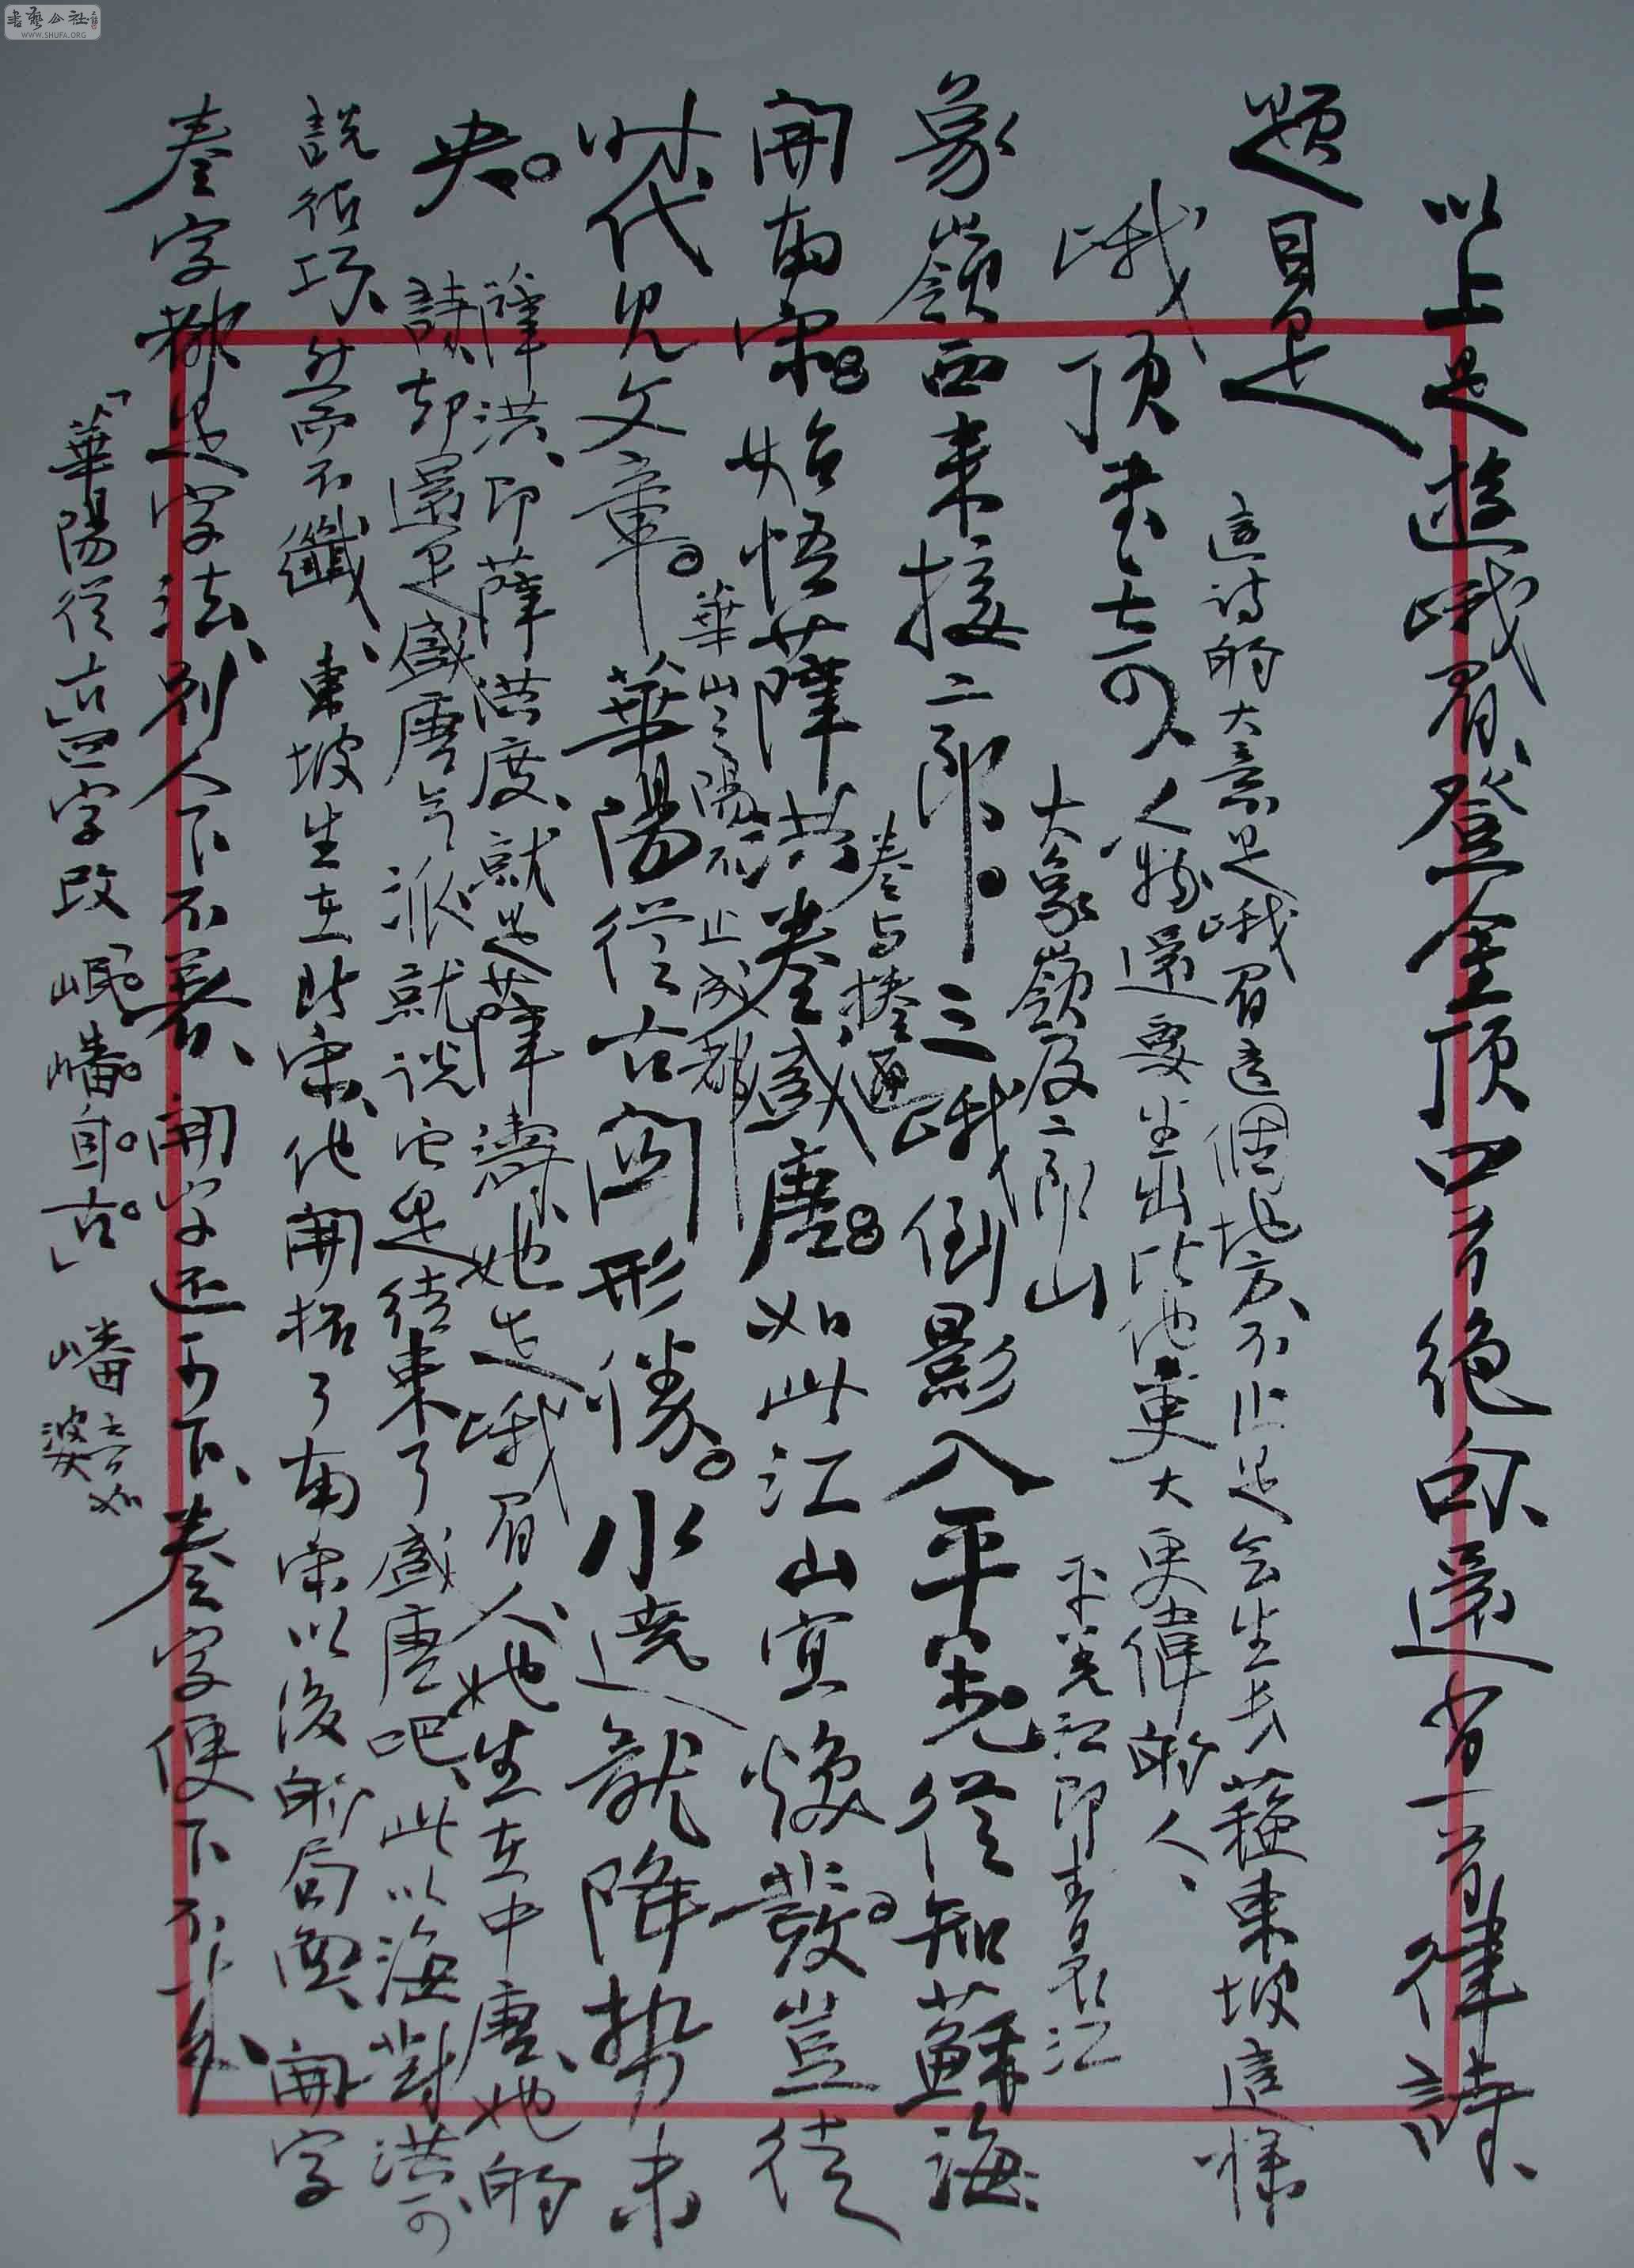 以上是遊峨眉、登金頂四首絕句、還有一首律詩、
題目是
這詩的大意是峨眉這個地方、不止是會生出蘇東坡這樣
峨頂書
人物還要生出比他更大更偉的人、
大象嶺及二郎山
平羌江即青衣江
象嶺西來接二郎。三峨倒影入平羌。從知蘇海
卷与捲通
開南宋。始悟薛洪卷盛唐。如此江山宜煥發。豈徒
華山之陽不止成都
時代見文章。華陽從古開形勝。水遶龍降勢未
央。
薛洪、即薛洪度、就是薛濤、她是峨眉人、她生在中唐、她的
詩却還是盛唐气派就説它是結束了盛唐吧、此以海對洪可
說很巧、然而不纖、東坡生在北宋、他開拓了南宋以後的局面、開字
卷字都是字法、別人下不着、開字还可下、卷字便下不來、
「華陽從古」四字改「岷嶓自古」 嶓音如婆
書藝公社
WWW.SHUFA.ORG